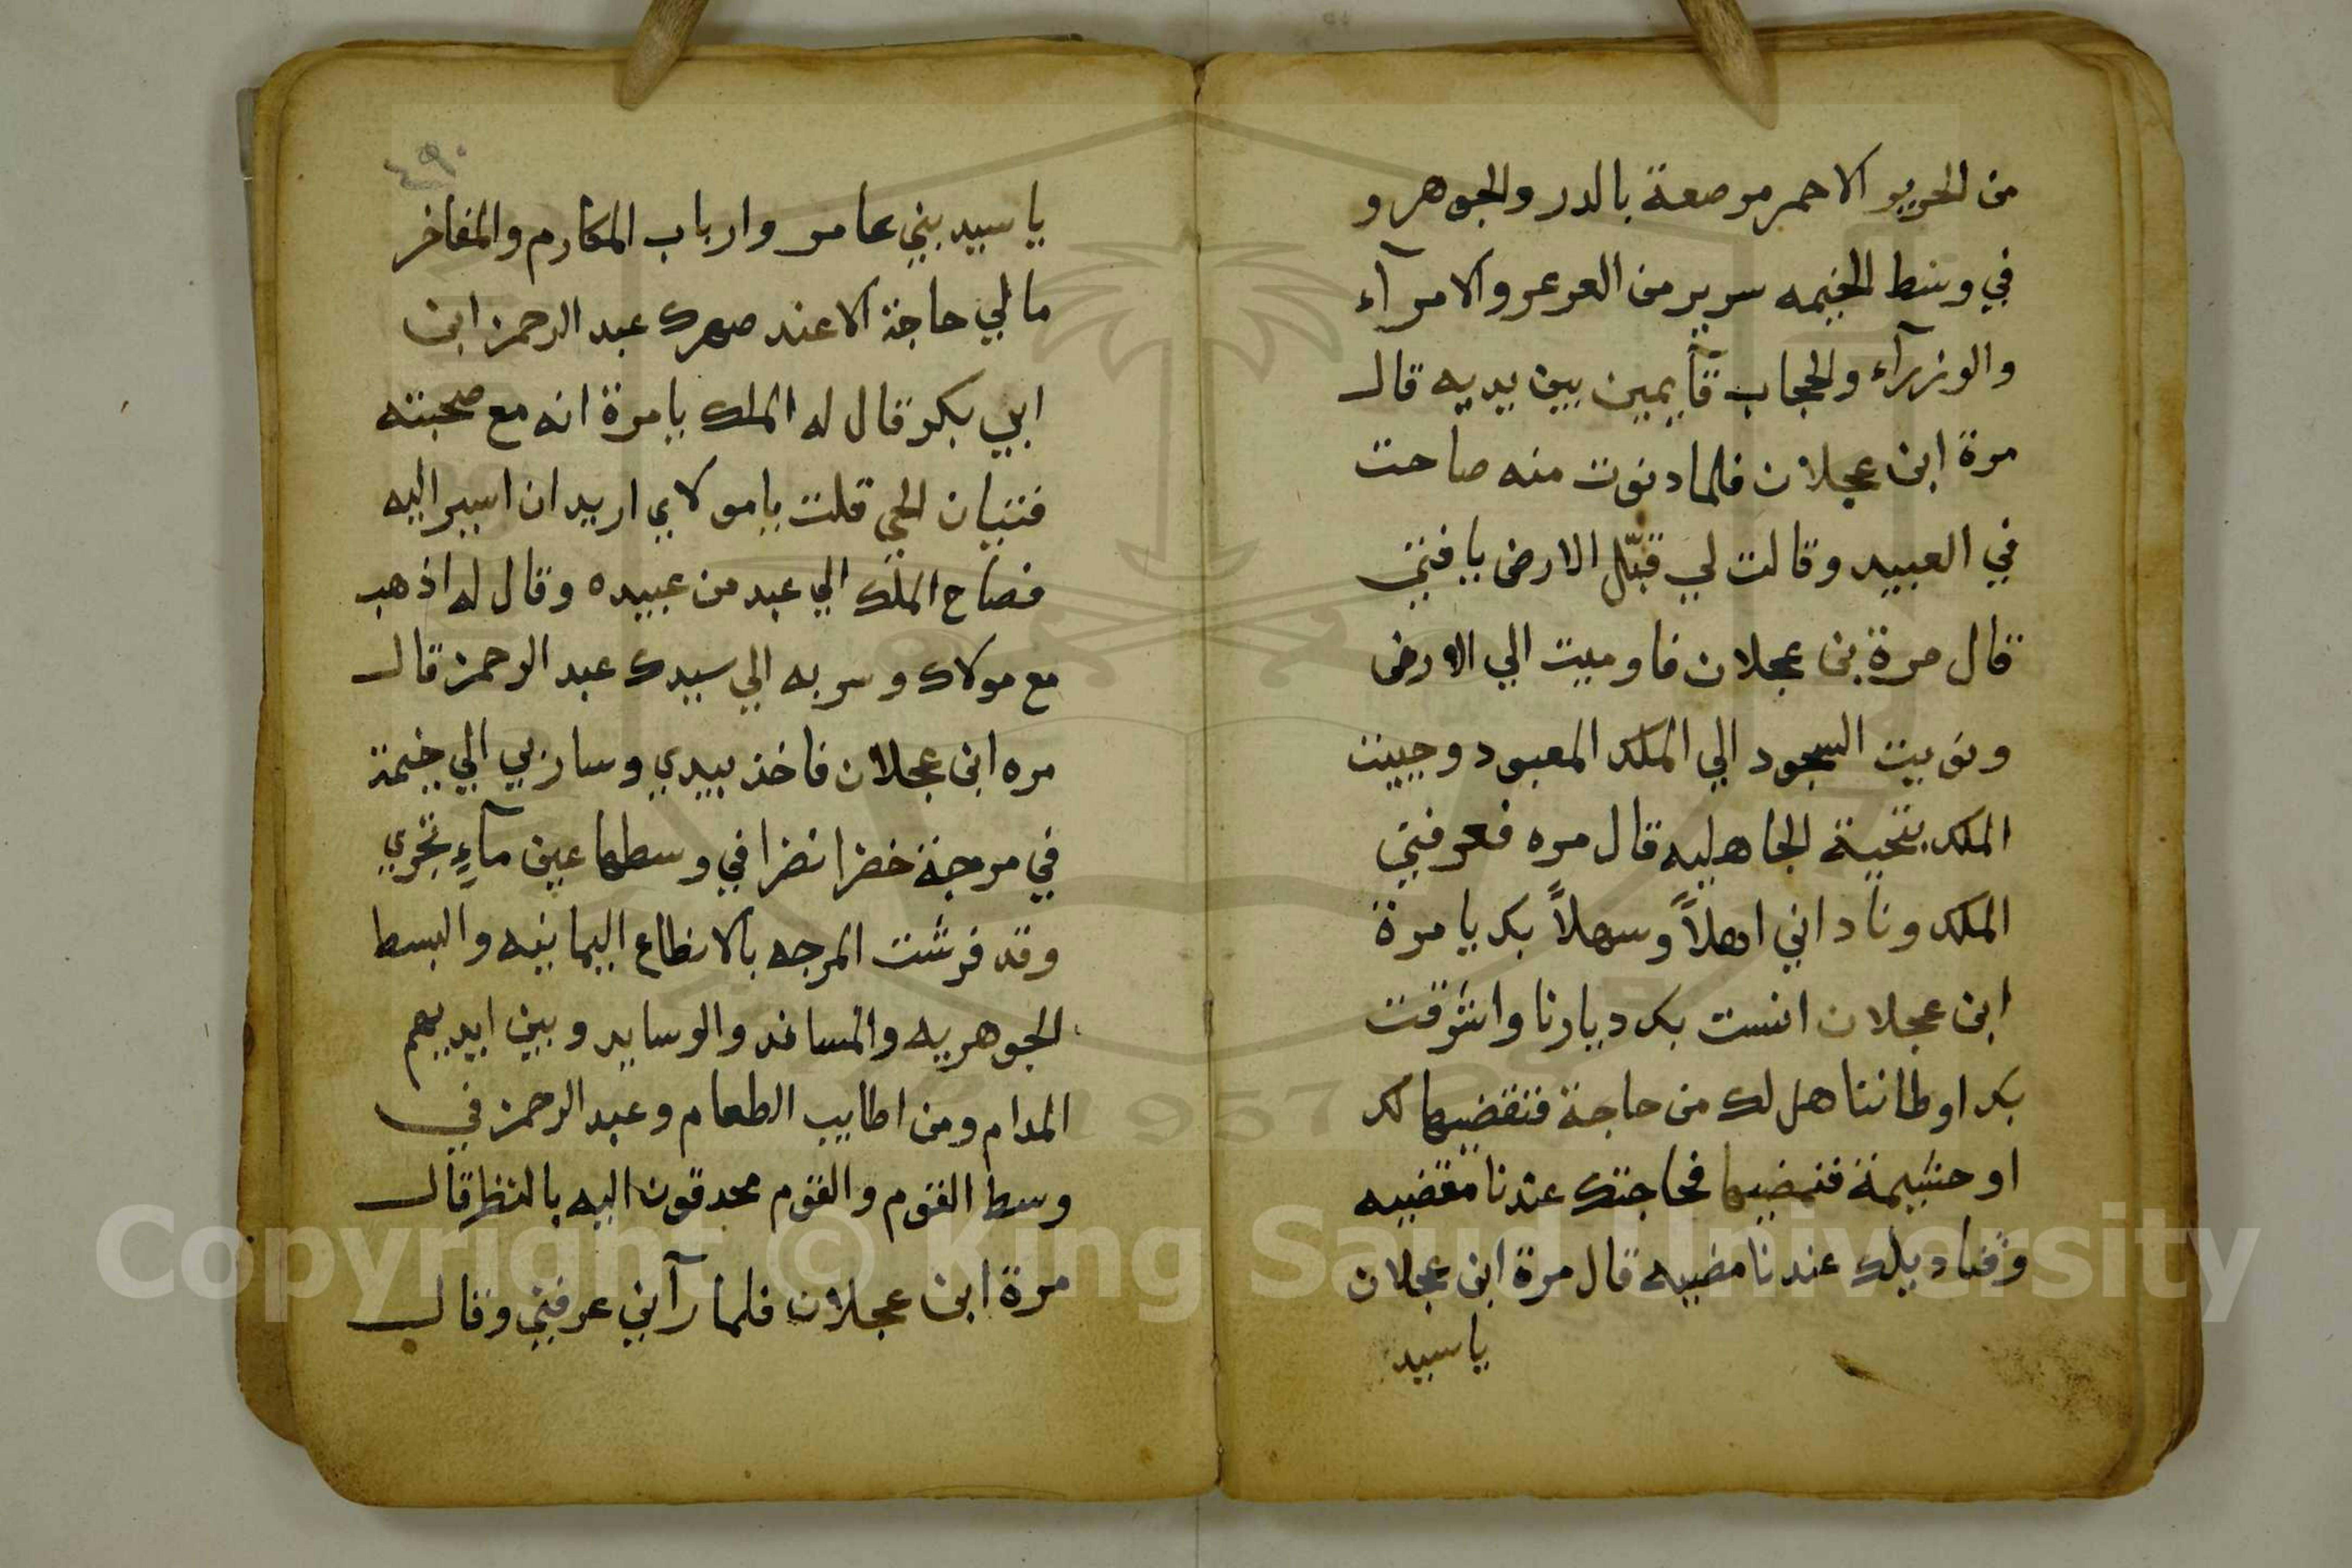 من الحرير الاحمر مرصعة بالدر والجوهر و
في وسط الخيمه سرير من العرعر والامرآء
والوزرآء والحجاب قآيمين بين يديه قال
مرة ابن عجلان فلما دنوت منه صاحت
في العبيد وقالت لي قبّل الارض يا فتي
قال مرة بن عجلان فاوميت الي الارض
ونويت السجود الي الملك المعبود وحييت
الملك بتحية الجاهليه قال مره فعرفني
الملك وناداني اهلاً وسهلاً بك يا مرة
ابن عجلان انست بك ديارنا واشرقت
بك اوطاننا هل لك من حاجة فنقضيها لك
او حشيمة فنمضيها فحاجتك عندنا مقضيه
وقناديلك عندنا مضيه قال مرة ابن عجلان
يا سيد
٤٩٠
يا سيد بني عامر وارباب المكارم والمفاخر
مالي حاجة الا عند صهرك عبد الرحمن ابن
ابي بكر قال له الملك يا مرة انه مع صحبته
فتيان الحي قلت يا مولاي اريد ان اسير اليه
فصاح الملك الي عبد من عبيده وقال له اذهب
مع مولاك وسر به الي سيدك عبد الرحمن قال
مره ابن عجلان فاخذ بيدي وسار بي الي خيمة
في مرجة خضرا نضرا في وسطها عين مآءٍ تجري
وقد فرشت المرجه بالانطاع اليمانيه والبسط
الجوهريه والمساند والوسايد وبين ايديهم
المدام ومن اطايب الطعام وعبد الرحمن في
وسط القوم والقوم محدقون اليه بالنظر قال
مرة ابن عجلان فلما رآني عرفني وقال
Copyright © King Saud University
1957